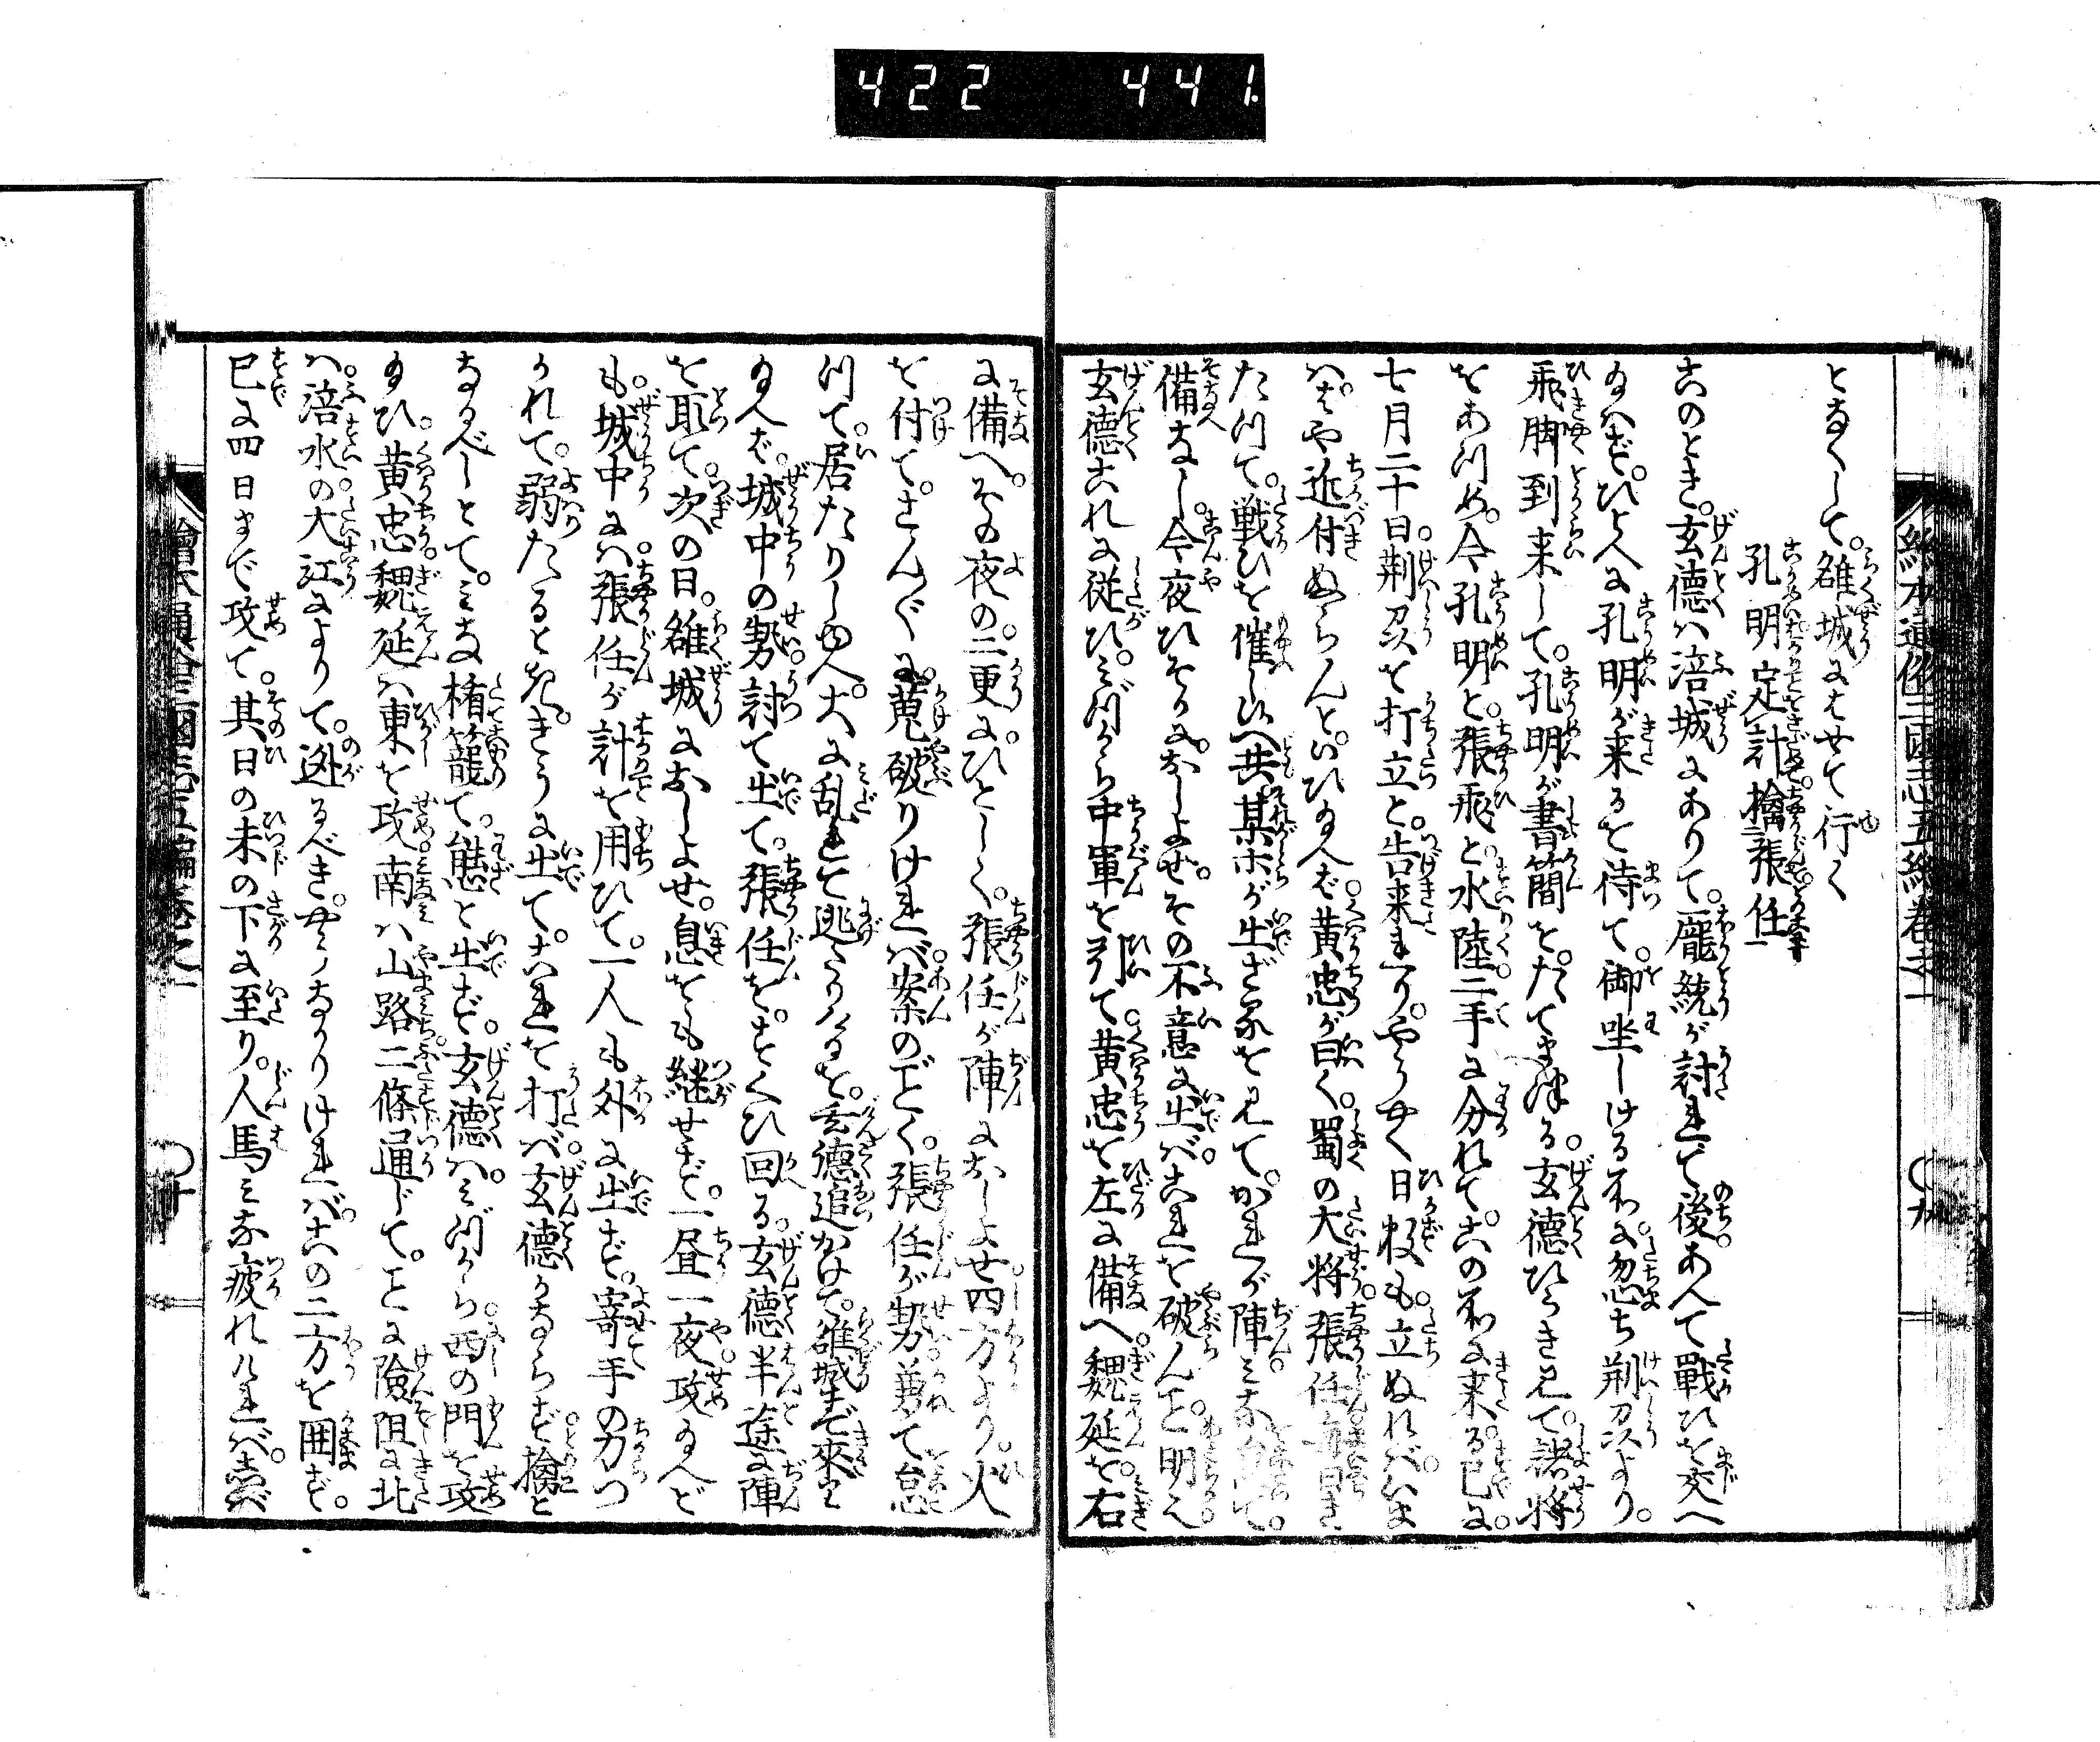 422 441
とあくして。雒城にはせて行く
孔明定計擒張任
このとき。玄德ハ涪城にありて。龐統が討れて後あへて戰ひを交へ
給はず。ひとへに孔明が来るを待て。御坐しける所に。忽ち荆州より。
飛脚到来して。孔明が書簡を。たてまつる。玄德ひらき見て。諸將
をあつめ。今孔明と。張飛と。水陸二手に分れて。この所に来る。已に。
七月二十日。荆州を打立と。告来れり。やうやく日数も。立ぬれバ。いま
ハはや近付ぬらんと。いひ給へば。黄忠が曰く。蜀の大将。張任毎日き
たつて。戦ひを催し候へ共。某ホが出ざるを見て。かれが陣。ミな て。
備なし。今夜ひそかに。おしよせ。その不意に出バ。これを破んこと。明らん
玄德これに従ひ。ミづから中軍を引て。黄忠を左に備へ。魏延を。右
に備へ。その夜の。二更に。ひとしく。張任が陣におしよせ四方より。火
を付て。さんぐに。蒐破りけれバ。案のごとく。張任が勢。兼て怠
つて。居たりし。ゆへ。大に乱れて逃うける。を。玄德追かけて。雒城まで来り
給へば。城中の勢。討て出て。張任を。すくひ回る。玄德半途に陣
を取て。次の日。雒城におしよせ。息をも継せず。一昼一夜。攻給へど
も。城中にハ。張任が計を用ひて。一人も外に出ず。寄手の力つ
かれて。弱たるとき。きうに出て。これを打バ。玄德かならず。擒と
なるべしとて。ミな楯籠て。態と出ず。玄德ハ。ミづから。西の門を攻
給ひ。黄忠。魏延ハ東を攻。南ハ山路二條通じて。ことに險阻に北
ハ。涪水の。大江によりて。遁るべき。やうなかりけれバ。この二方を囲ず。
已に四日まで攻て。其日の未の下に至り。人馬ミな疲れけれバ。